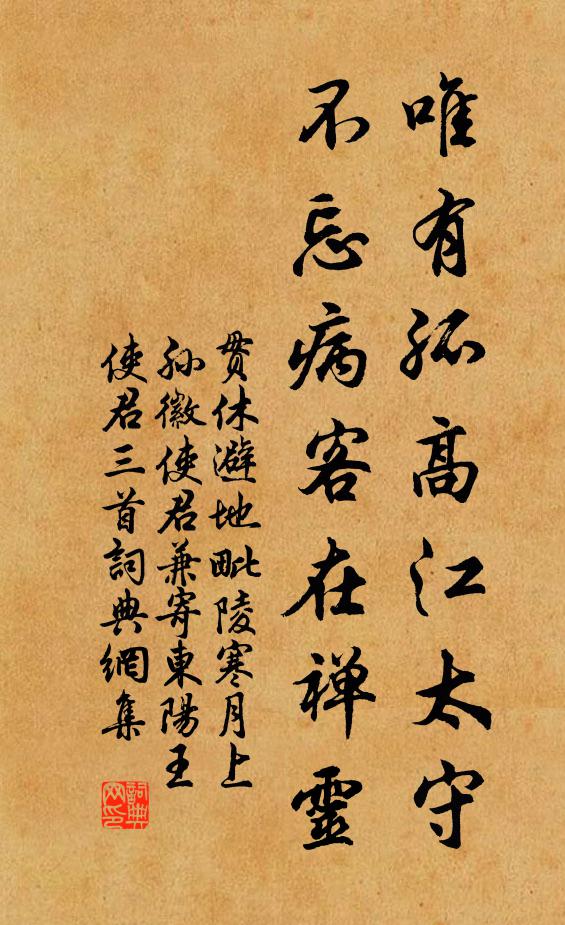 唯有孤高江太守
不忘病客在禅靈
貫休避地毗陵寒月上
孙徽使君兼寄東陽王
使君三首詞典網集
詞典网印